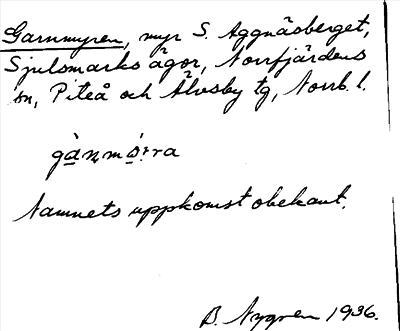 Garnmyren, myr S. Aggnäsberget,
Sjulsmarks ägor, Norrfjärdens
sn, Piteå och Älvsby tg, Norrb. l.
Namnets uppkomst obekant.
B. Nygren 1936.